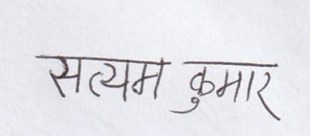 सत्यम कुमार